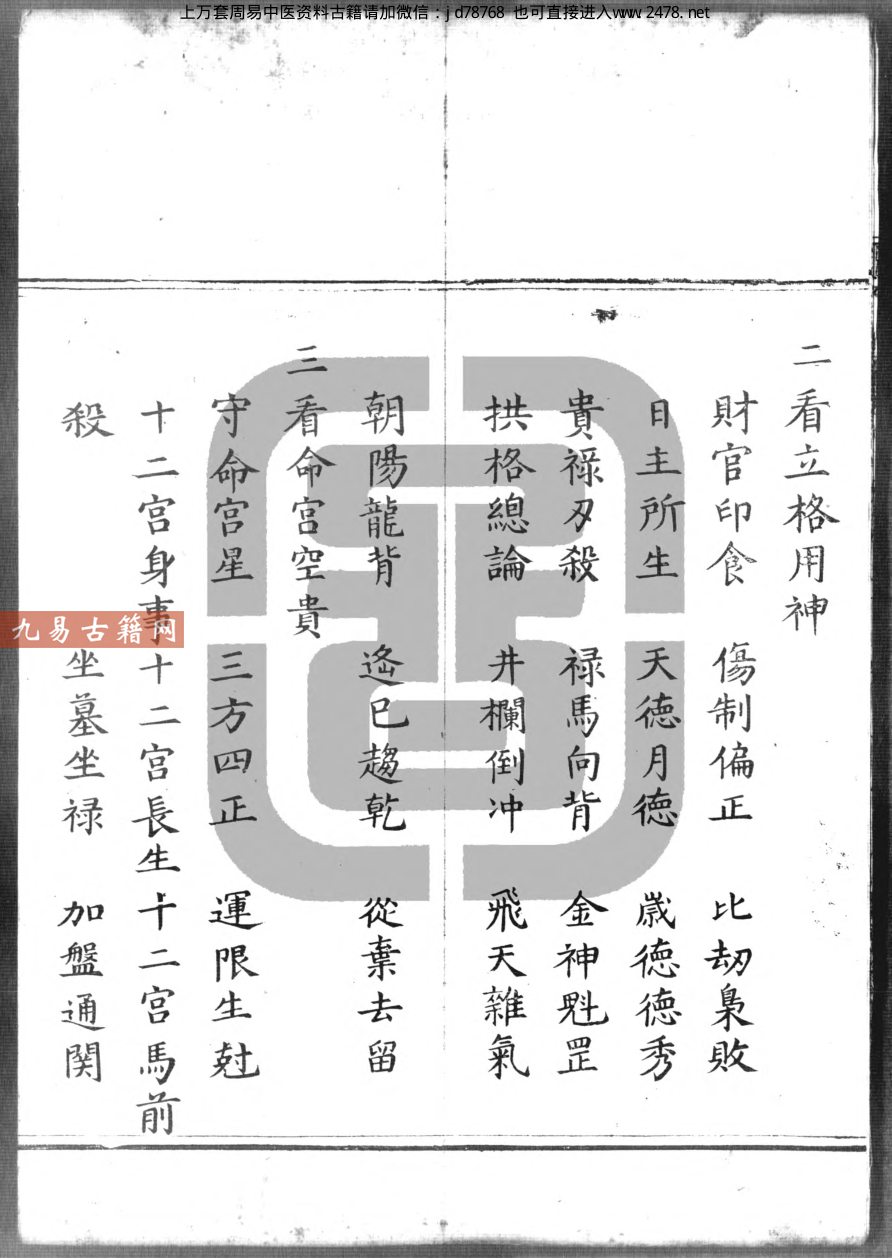 上万套周易中医资料古籍请加微信：jd78768 也可直接进入www.2478.net
二看立格用神
財官印食 傷制偏正 比劫梟敗
日主所生 天德月德 歲德德秀
貴祿刃殺 祿馬向背 金神魁罡
拱格總論 井欄倒冲 飛天雜氣
朝陽龍背 遙巳趨乾 從棄去留
三看命宮空貴
守命宮星 三方四正 運限生尅
十二宮身事十二宮長生十二宮馬前
殺 坐墓坐祿 加盤通関
九易古籍网